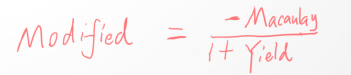 Modified = - Macaulay / 1 + Yield